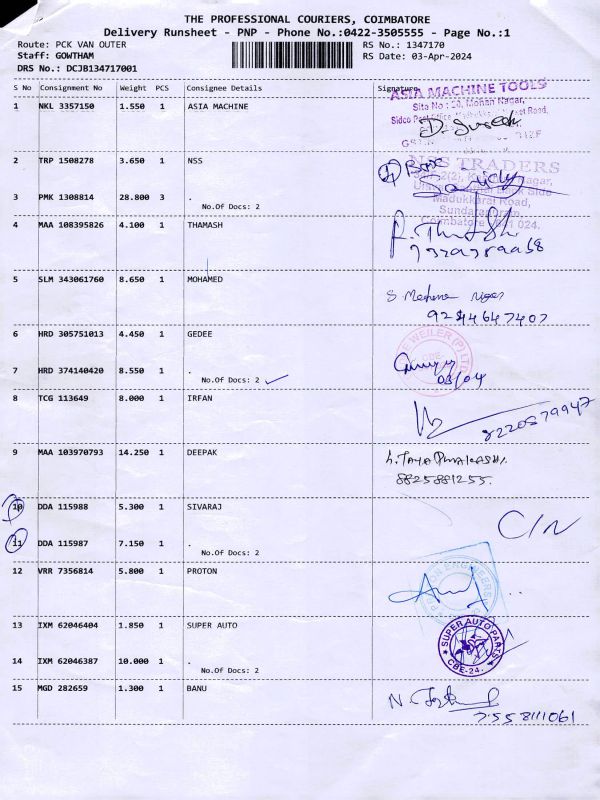 THE PROFESSIONAL COURIERS, COIMBATORE
Delivery Runsheet - PNP - Phone No.:0422-3505555 - Page No.:1
Route: PCK VAN OUTER RS No.: 1347170
Staff: GOWTHAM RS Date: 03-Apr-2024
DRS No.: DCJB134717001
S No Consignment No Weight PCS Consignee Details Signature
ASIA MACHINE TOOLS
1 NKL 3357150 1.550 1 ASIA MACHINE
Site No : 20, Mohan Nagar,
D. Suresh
2 TRP 1508278 3.650 1 NSS
NSS TRADERS
3 PMK 1308814 28.800 3 .
Madukkarai Road,
No.Of Docs: 2
Sundarapuram,
Coimbatore - 641 024.
4 MAA 108395826 4.100 1 THAMASH
5 SLM 343061760 8.650 1 MOHAMED
9244647407
6 HRD 305751013 4.450 1 GEDEE
7 HRD 374140420 8.550 1 .
03/04
No.Of Docs: 2
8 TCG 113649 8.000 1 IRFAN
8220579947
9 MAA 103970793 14.250 1 DEEPAK
8825881255.
10 DDA 115988 5.300 1 SIVARAJ
C/N
11 DDA 115987 7.150 1 .
No.Of Docs: 2
12 VRR 7356814 5.800 1 PROTON
13 IXM 62046404 1.850 1 SUPER AUTO
SUPER AUTO PARTS
CBE-24.
14 IXM 62046387 10.000 1 .
No.Of Docs: 2
15 MGD 282659 1.300 1 BANU
7558111061